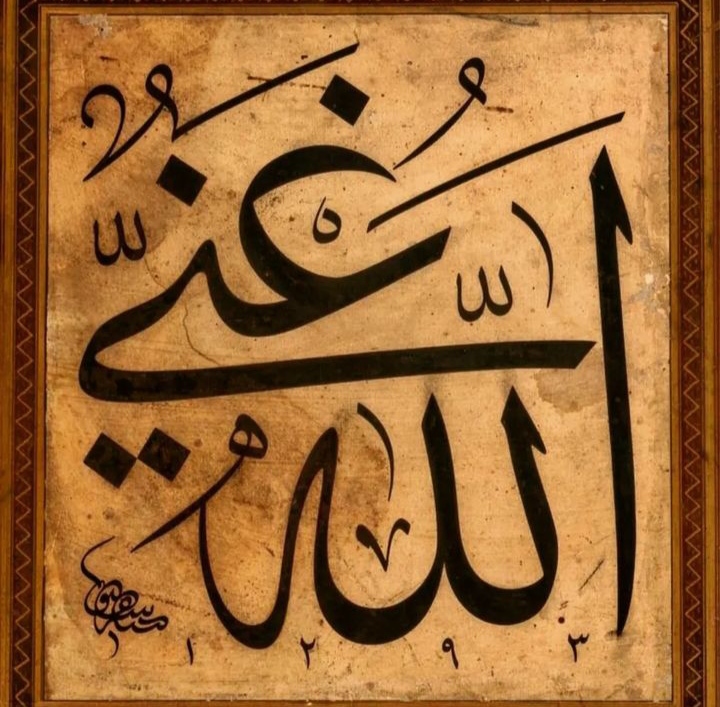 الله
غنيٌّ
١٢٩٣